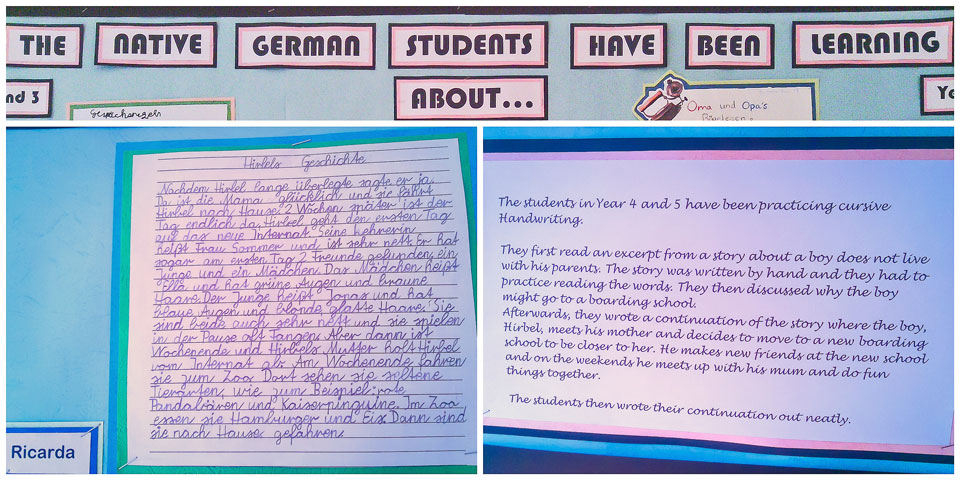 THE NATIVE GERMAN STUDENTS HAVE BEEN LEARNING
ABOUT...
nd 3
Gesprächsregeln
Oma und Opa's
Ye
Hirbels Geschichte
Nachdem Hirbel lange überlegte sagte er ja.
Da ist die Mama glücklich und sie fährt
Hirbel nach Hause. 2 Wochen später ist der
Tag endlich da. Hirbel geht den ersten Tag
auf das neue Internat. Seine Lehrerin
heißt Frau Sommer und ist sehr nett. Er hat
sogar am ersten Tag 2 Freunde gefunden, ein
Junge und ein Mädchen. Das Mädchen heißt
Ella und hat grüne Augen und braune
Haare. Der Junge heißt Jonas und hat
blaue Augen und blonde, glatte Haare. Sie
sind beide auch sehr nett und sie spielen
in der Pause oft fangen. Aber dann ist
Wochenende und Hirbels Mutter holt Hirbel
vom Internat ab. Am Wochenende fahren
sie zum Zoo. Dort sehen sie seltene
Tierarten, wie zum Beispiel: rote
Pandabären und Kaiserpinguine. Im Zoo
essen sie Hamburger und Eis. Dann sind
sie nach Hause gefahren.
Ricarda
The students in Year 4 and 5 have been practicing cursive
Handwriting.
They first read an excerpt from a story about a boy does not live
with his parents. The story was written by hand and they had to
practice reading the words. They then discussed why the boy
might go to a boarding school.
Afterwards, they wrote a continuation of the story where the boy,
Hirbel, meets his mother and decides to move to a new boarding
school to be closer to her. He makes new friends at the new school
and on the weekends he meets up with his mum and do fun
things together.
The students then wrote their continuation out neatly.